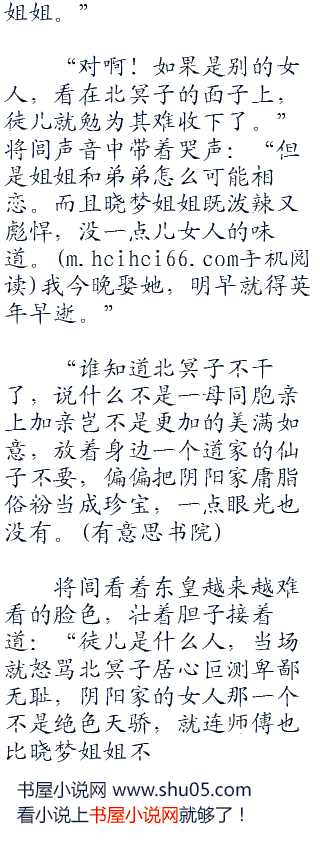 姐姐。”
“对啊！如果是别的女
人，看在北冥子的面子上，
徒儿就勉为其难收下了。”
将闾声音中带着哭声：“但
是姐姐和弟弟怎么可能相
恋。而且晓梦姐姐既泼辣又
彪悍，没一点儿女人的味
道。(m.hcihci66.com手机阅
读)我今晚娶她，明早就得英
年早逝。”
“谁知道北冥子不干
了，说什么不是一母同胞亲
上加亲岂不是更加的美满如
意，放着身边一个道家的仙
子不要，偏偏把阴阳家庸脂
俗粉当成珍宝，一点眼光也
没有。(有意思书院)
将闾看着东皇越来越难
看的脸色，壮着胆子接着
道：“徒儿是什么人，当场
就怒骂北冥子居心叵测卑鄙
无耻，阴阳家的女人那一个
不是绝色天骄，就连师傅也
比晓梦姐姐不
书屋小说网 www.shu05.com
看小说上书屋小说网就够了！